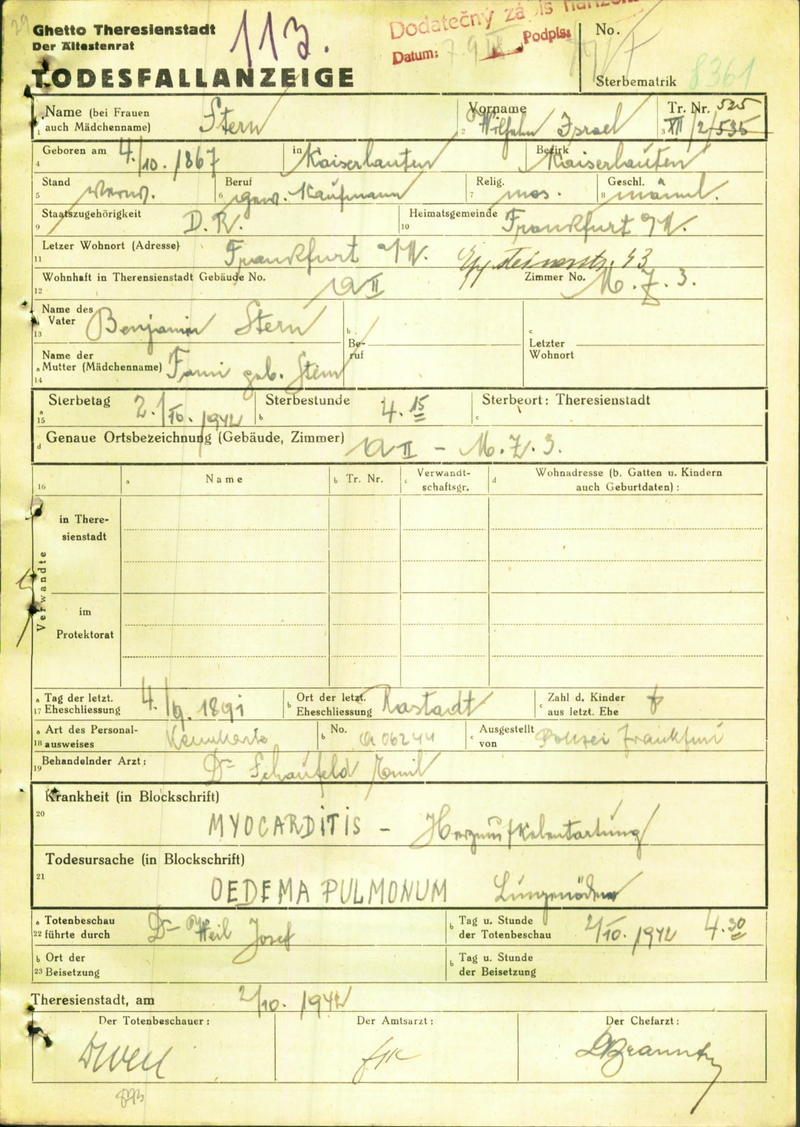 Ghetto Theresienstadt
Der Ältestenrat
113.
TODESFALLANZEIGE
Dodatečný
Datum: Podpis:
No.
Sterbematrik 8361
Name (bei Frauen auch Mädchenname) Stern
1
Vorname Wilhelm Israel
2
Tr. Nr. 525
3 XII/2-535
Geboren am 4./10. /1867 in Kaiserlauten Bezirk Kaiserlauten
4
Stand verw. Beruf gew. Kaufmann Relig. mos. Geschl. männl.
5 6 7 8
Staatszugehörigkeit D.R. Heimatsgemeinde Frankfurt a/M.
9 10
Letzer Wohnort (Adresse) Frankfurt a/M. 43
11
Wohnhaft in Theresienstadt Gebäude No. Zimmer No. M.Z.3.
12
Name des Vater Benjamin Stern
13
b Beruf
c Letzter Wohnort
Name der
a Mutter (Mädchenname) Fanni geb. Stern
14
a Sterbetag 2./10./1942 b Sterbestunde 4.15 c Sterbeort: Theresienstadt
15
d Genaue Ortsbezeichnung (Gebäude, Zimmer) II - M.Z.3.
16 a Name b Tr. Nr. c Verwandtschaftsgr. d Wohnadresse (b. Gatten u. Kindern auch Geburtdaten):
Verwandte
in Theresienstadt
im Protektorat
a Tag der letzt. b Ort der letzt. Zahl d. Kinder
17 Eheschliessung 4./9. 1891 Eheschliessung Rastadt c aus letzt. Ehe
a Art des Personal- No. c Ausgestellt
18 ausweises Kennkarte b 06244 von Polizei Frankfurt
Behandelnder Arzt: Dr Schaufeld Emil
19
Krankheit (in Blockschrift)
20
MYOCARDITIS - Herzmuskelentartung
Todesursache (in Blockschrift)
21
OEDEMA PULMONUM Lungenödem
a Totenbeschau b Tag u. Stunde
22 führte durch Dr Weil Josef der Totenbeschau 2/10. /1942 4.30
b Ort der b Tag u. Stunde
23 Beisetzung der Beisetzung
Theresienstadt, am 2/10. /1942
Der Totenbeschauer: Der Amtsarzt: Der Chefarzt:
893